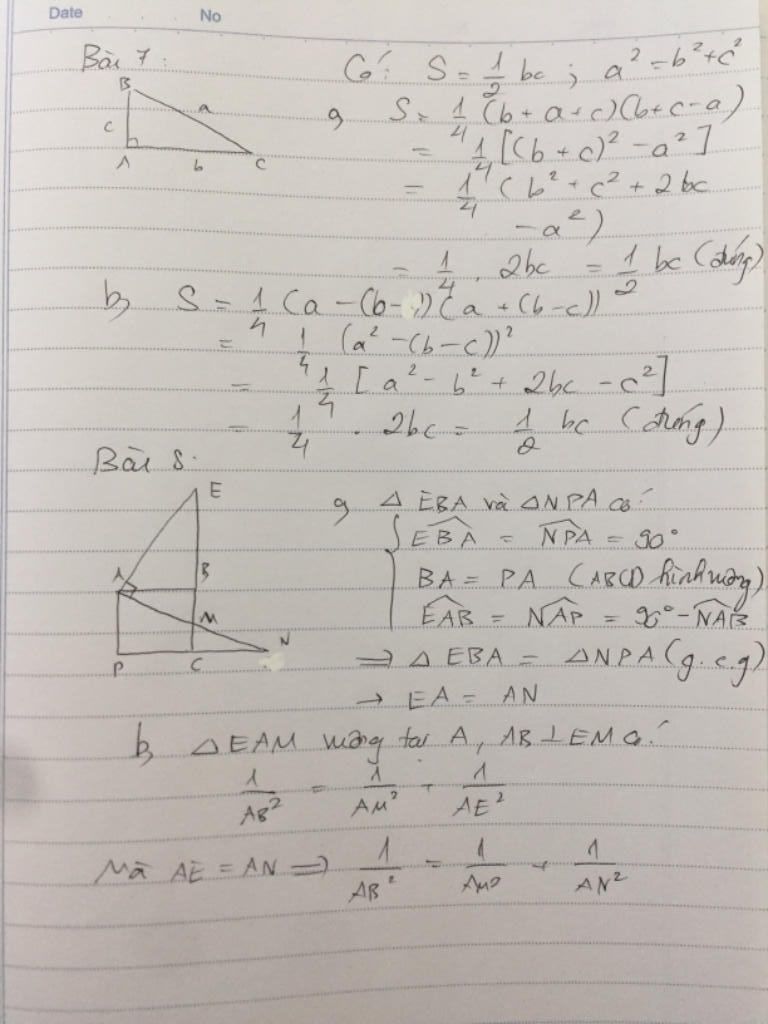 Date No
Bài 7:
B
a
c
A
b
C
Có: S = 1/2 bc ; a² = b² + c²
a, S = 1/4 (b + a + c)(b + c - a)
= 1/4 [(b + c)² - a²]
= 1/4 (b² + c² + 2bc
- a²)
= 1/4 . 2bc = 1/2 bc (đúng)
b, S = 1/4 (a - (b - c))(a + (b - c))
= 1/4 (a² - (b - c))²
= 1/4 [a² - b² + 2bc - c²]
= 1/4 . 2bc = 1/2 bc (đúng)
Bài 8:
E
A
B
M
N
P
C
a, △EBA và △NPA có:
EBA = NPA = 90°
BA = PA (ABCD hình vuông)
EAB = NAP = 90° - NAB
⇒ △EBA = △NPA (g.c.g)
→ EA = AN
b, △EAM vuông tại A, AB ⊥ EM có:
1/AB² = 1/AM² + 1/AE²
Mà AE = AN ⇒ 1/AB² = 1/AM² + 1/AN²